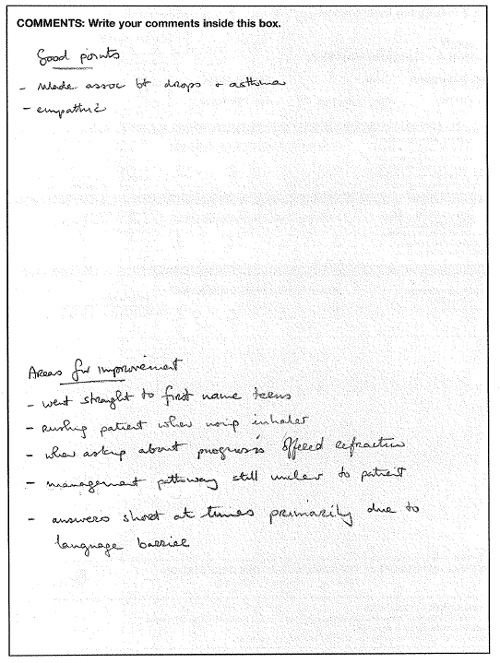 COMMENTS: Write your comments inside this box.
Good points
- Made assoc bt drops + asthma
- empathic
Areas for improvement
- went straight to first name terms
- rushing patient when using inhaler
- when asking about prognosis offered refraction
- management pathway still unclear to patient
- answers short at times primarily due to
language barrier